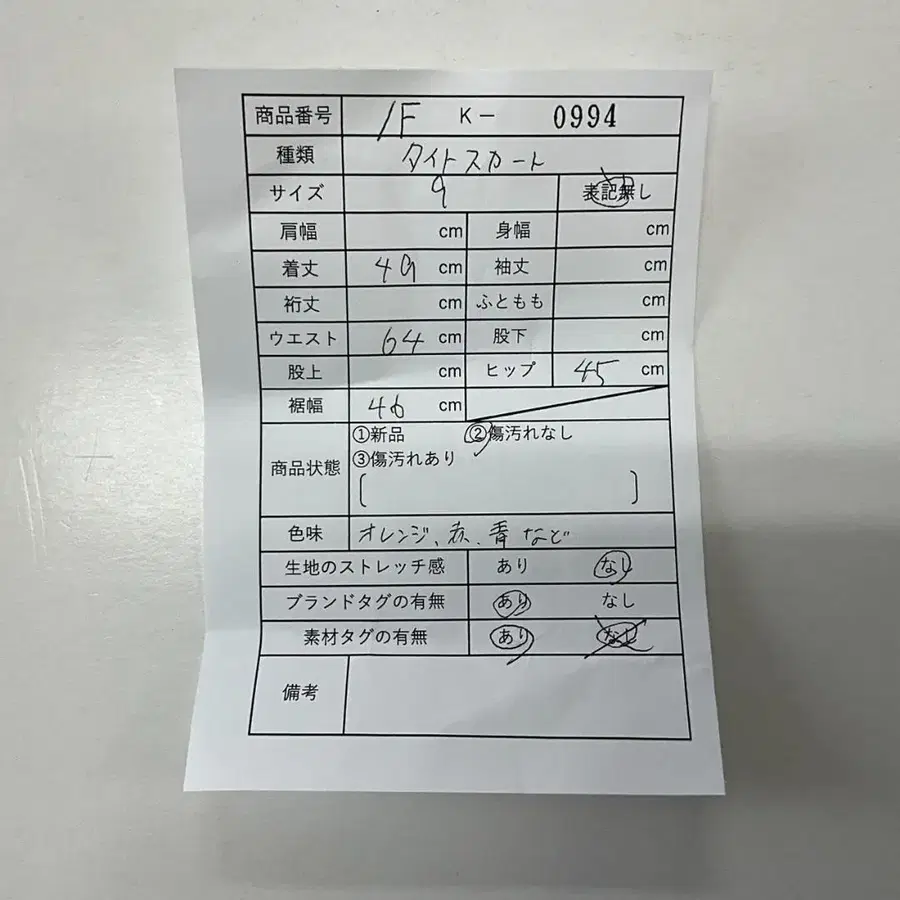 商品番号 1F K- 0994
種類 タイトスカート
サイズ 9 表記無し
肩幅 cm 身幅 cm
着丈 49 cm 袖丈 cm
裄丈 cm ふともも cm
ウエスト 64 cm 股下 cm
股上 cm ヒップ 45 cm
裾幅 46 cm
①新品 ②傷汚れなし
商品状態 ③傷汚れあり
[ ]
色味 オレンジ、赤、青など
生地のストレッチ感 あり なし
ブランドタグの有無 あり なし
素材タグの有無 あり なし
備考